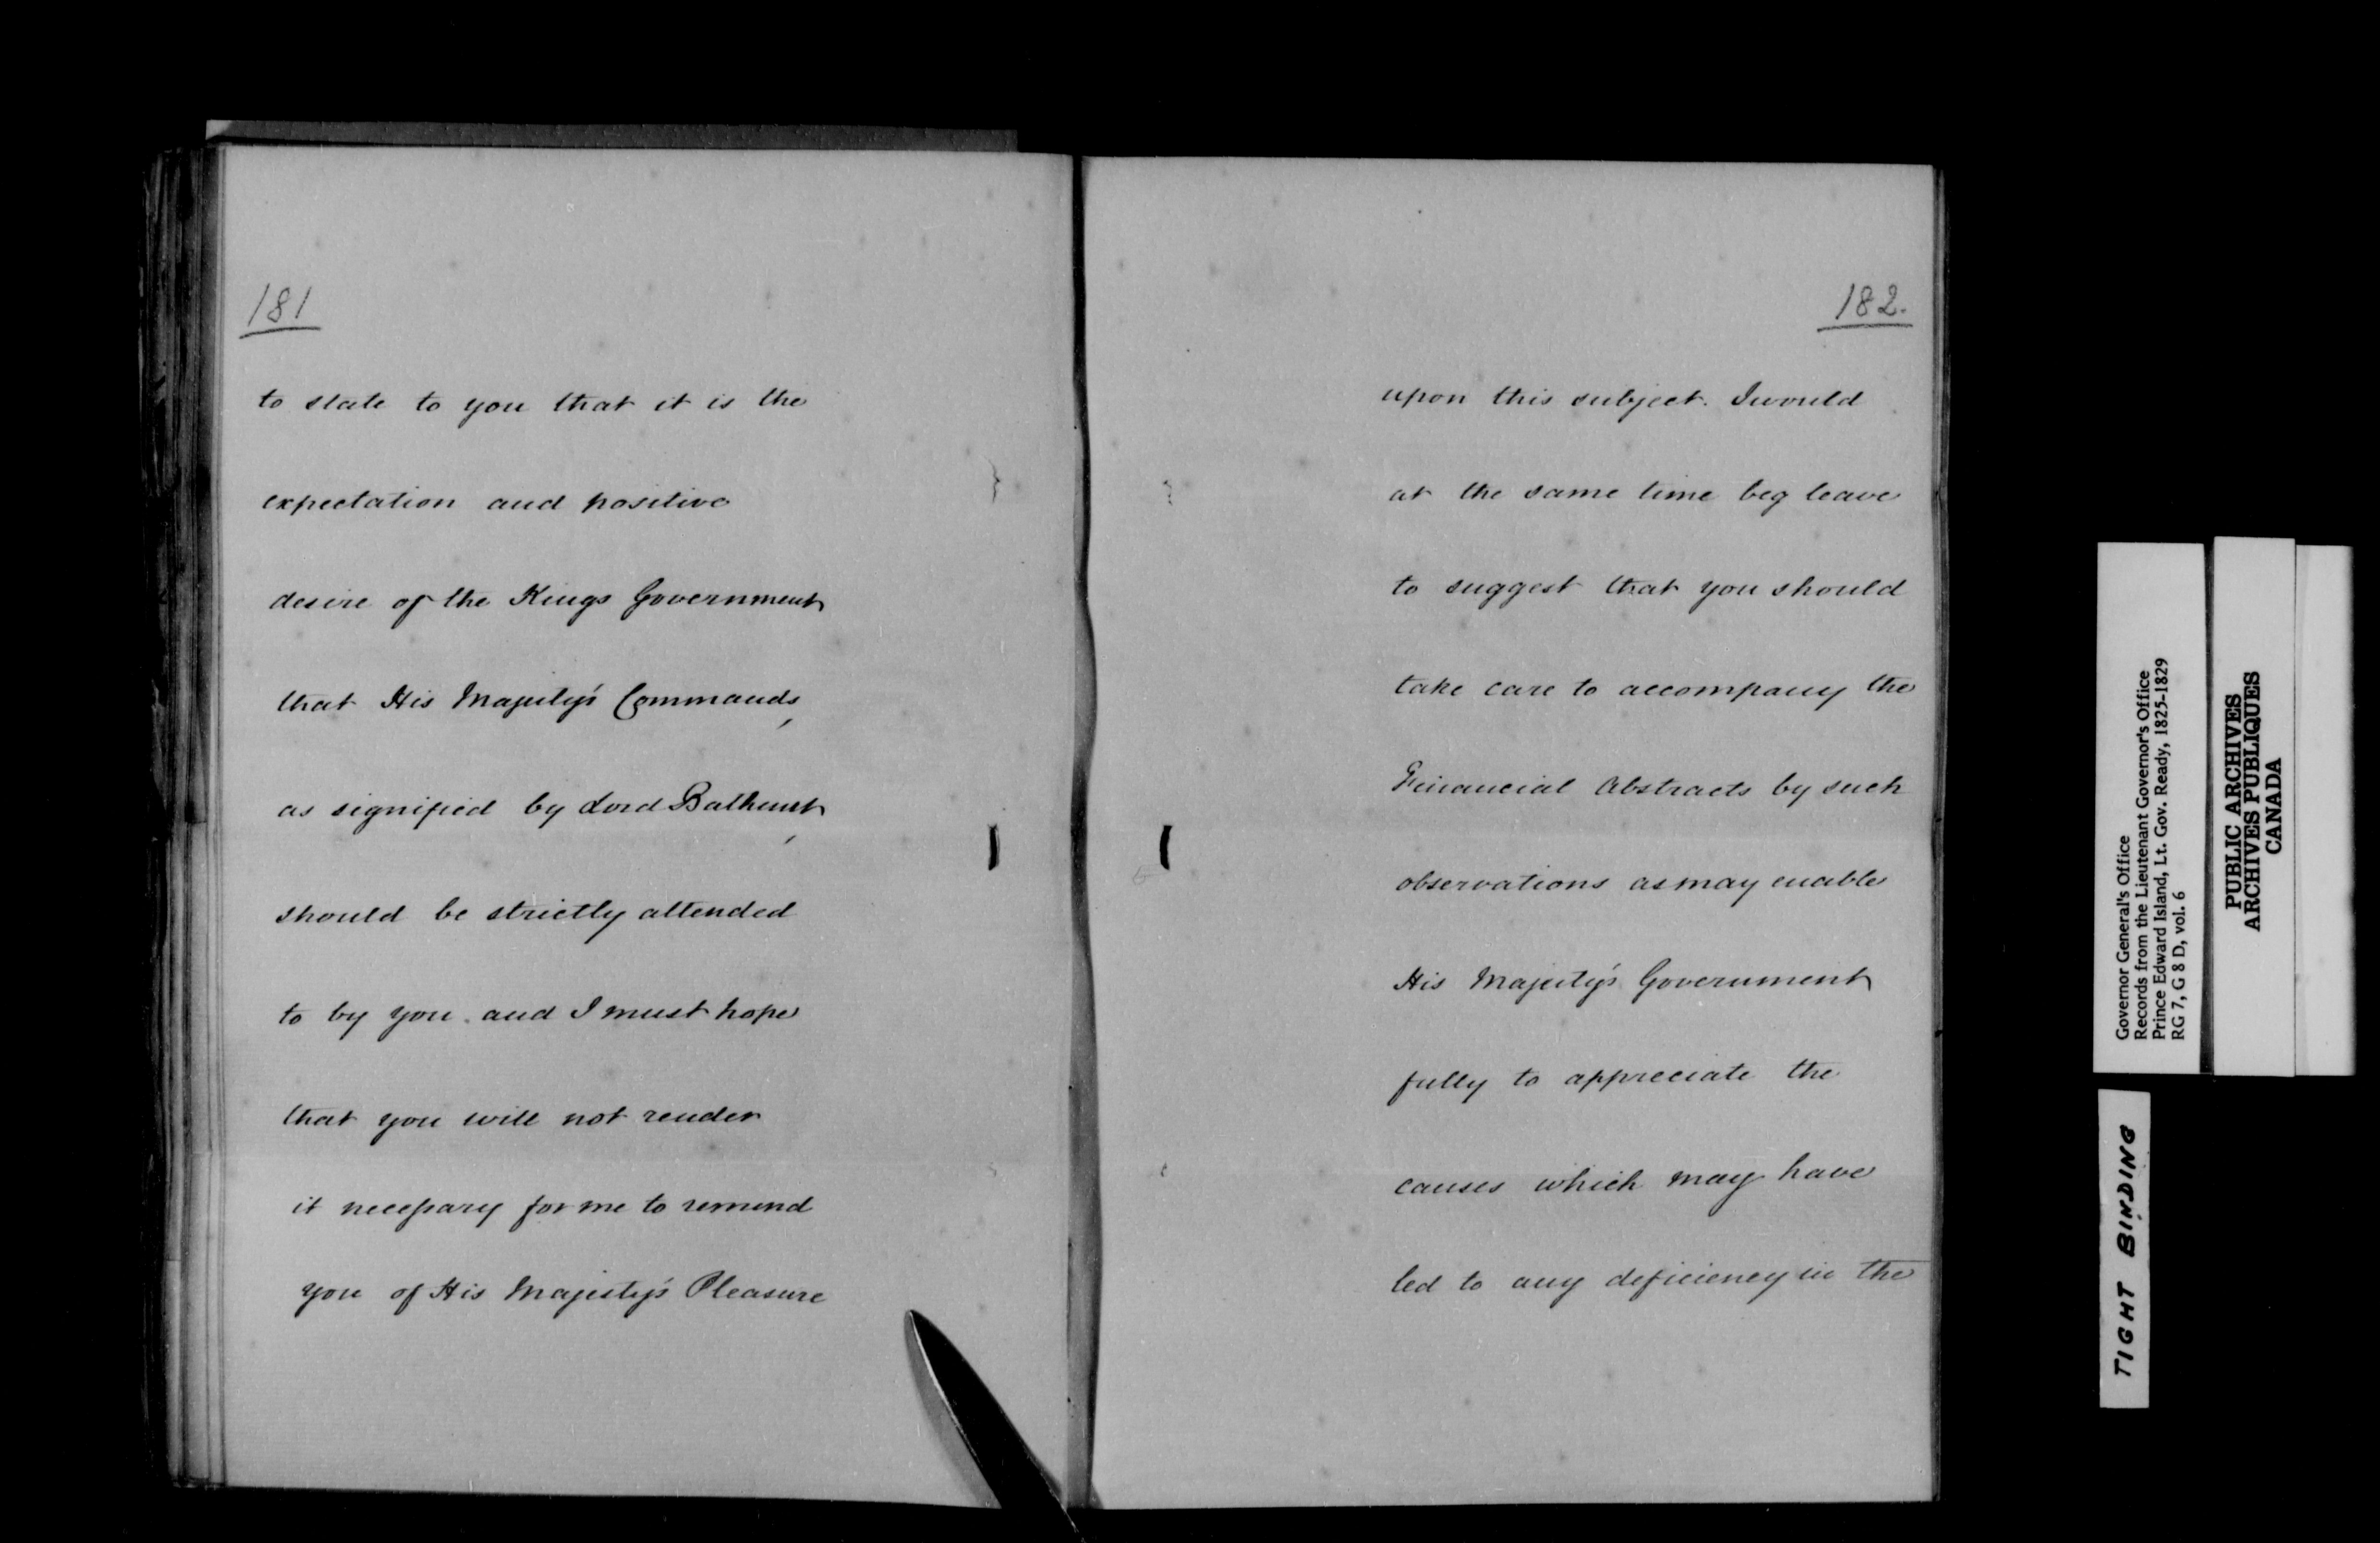 181
to state to you that it is the
expectation and positive
desire of the Kings Government
that His Majesty's Commands,
as signified by Lord Bathurst,
should be strictly attended
to by you. and I must hope
that you will not render
it necessary for me to remind
you of His Majesty's Pleasure
182.
upon this subject. I would
at the same time beg leave
to suggest that you should
take care to accompany the
Financial Abstracts by such
observations as may enable
His Majesty's Government
fully to appreciate the
causes which may have
led to any deficiency in the
Governor General's Office
Records from the Lieutenant Governor's Office
Prince Edward Island, Lt. Gov. Ready, 1825-1829
RG 7, G 8 D, vol. 6
PUBLIC ARCHIVES
ARCHIVES PUBLIQUES
CANADA
TIGHT BINDING